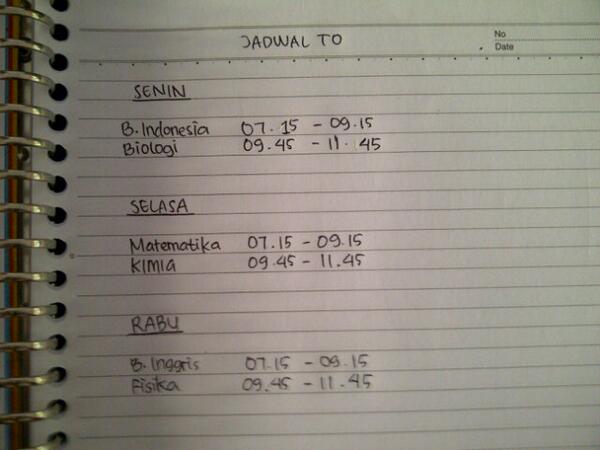 JADWAL TO
No
Date
SENIN
B. Indonesia 07.15 - 09.15
Biologi 09.45 - 11.45
SELASA
Matematika 07.15 - 09.15
KIMIA 09.45 - 11.45
RABU
B. Inggris 07.15 - 09.15
Fisika 09.45 - 11.45